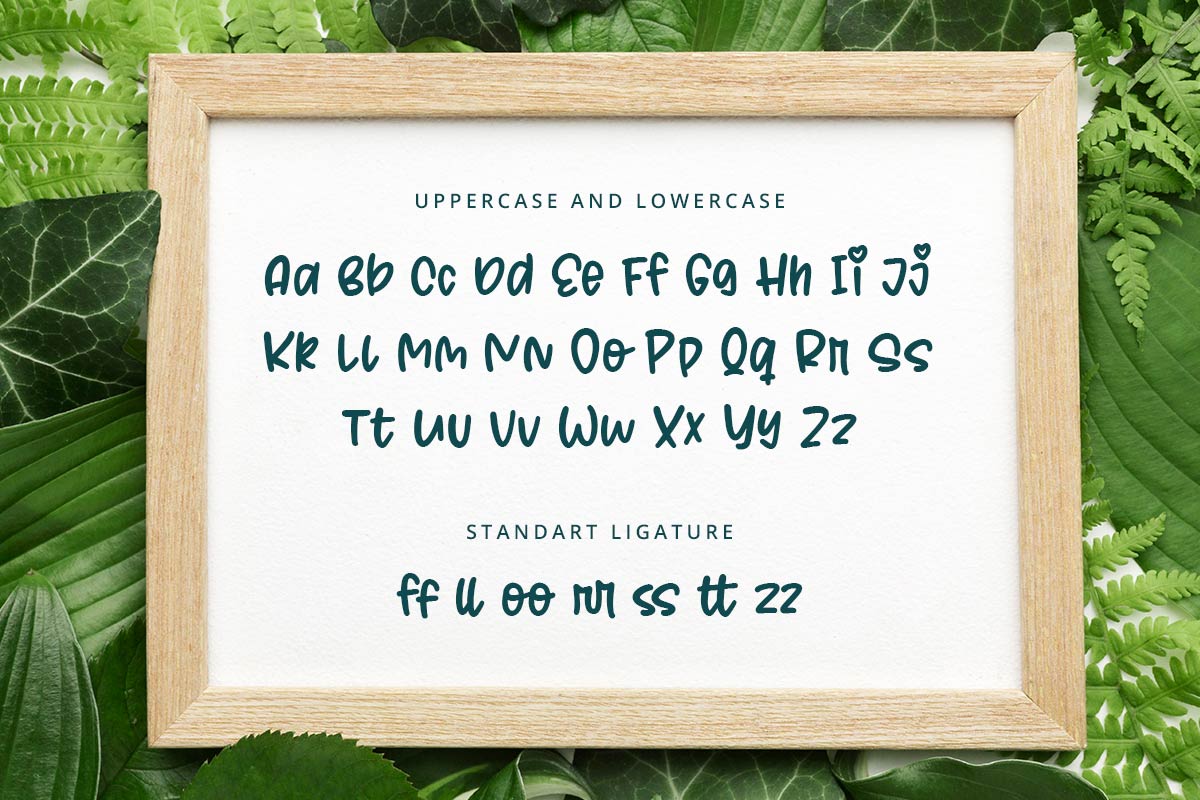 UPPERCASE AND LOWERCASE
Aa Bb Cc Dd Ee Ff Gg Hh Ii Jj
Kk Ll Mm Nn Oo Pp Qq Rr Ss
Tt Uu Vv Ww Xx Yy Zz
STANDART LIGATURE
ff ll oo rr ss tt zz